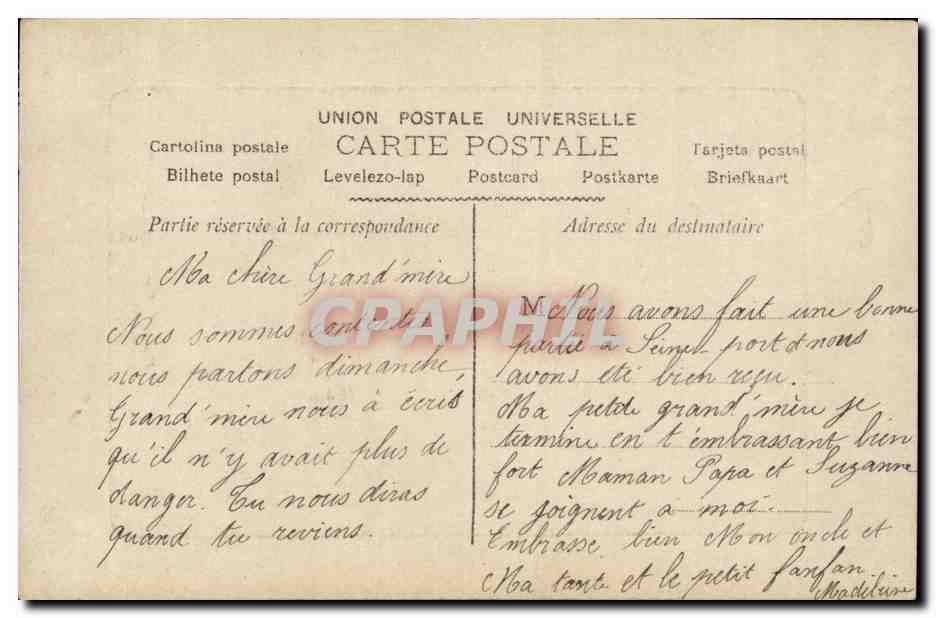 UNION POSTALE UNIVERSELLE
CARTE POSTALE
Cartolina postale
Tarjeta postal
Bilhete postal
Levelezo-lap
Postcard
Postkarte
Briefkaart
Partie réservée à la correspondance
Ma chère Grand'mère
Nous sommes contentes
nous partons dimanche,
Grand'mère nous à écrit
qu'il n'y avait plus de
danger. Tu nous diras
quand tu reviens.
Adresse du destinataire
M Nous avons fait une bonne
partie à Seine-port et nous
avons été bien reçu.
Ma petite grand'mère je
termine en t'embrassant bien
fort Maman Papa et Suzanne
se joignent a moi.
Embrasse bien Mon oncle et
Ma tante et le petit fanfan.
Madeleine
CPAPHIL